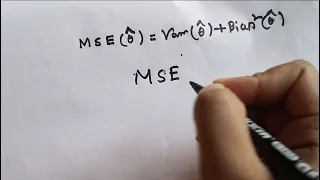 MSE(θ̂) = Var(θ̂) + Bias²(θ̂)
MSE